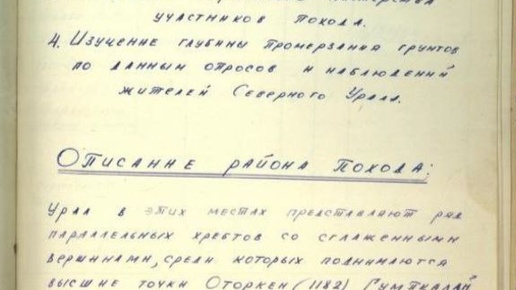 участников похода.
4. Изучение глубины промерзания грунтов
по данным опросов и наблюдений
жителей Северного Урала.
Описание района похода:
Урал в этих местах представляют ряд
параллельных хребтов со сглаженными
вершинами, среди которых поднимаются
высшие точки Отортен (1182)